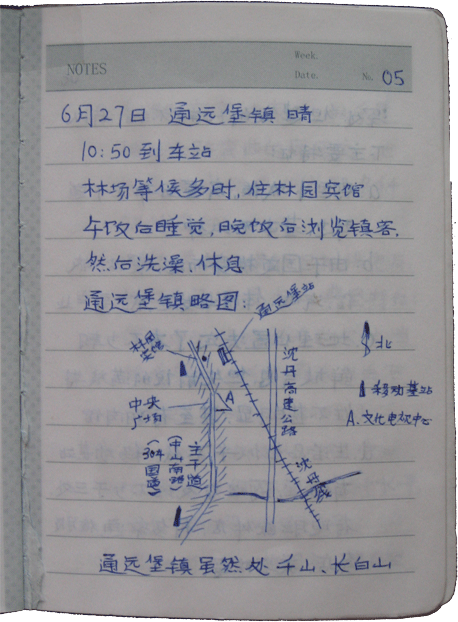 NOTES
Week.
Date.
No. 05
6月27日 通远堡镇 晴
10:50到车站
林场等候多时,住林园宾馆
午饭后睡觉,晚饭后浏览镇容,
然后洗澡、休息.
通远堡镇略图:
通远堡站
林园宾馆
北
沈丹高速公路
移动基站
中央广场
A
A.文化电视中心
主干道
(中山南路)
(304国道)
沈丹线
通远堡镇虽然处千山、长白山